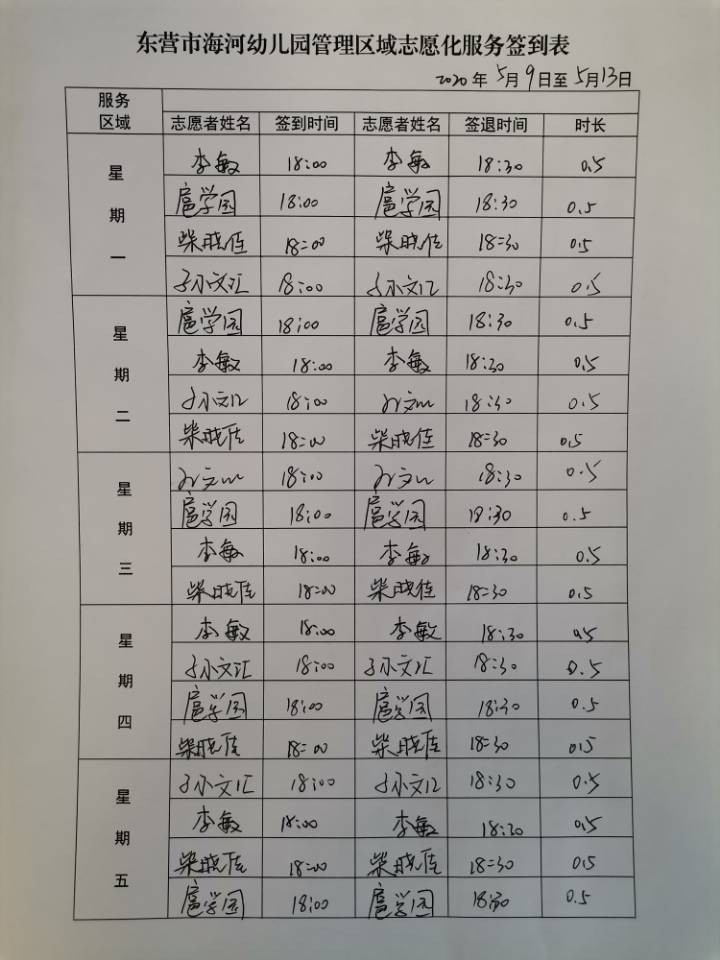 东营市海河幼儿园管理区域志愿化服务签到表
2020年5月9日至5月13日
服务区域
志愿者姓名 签到时间 志愿者姓名 签退时间 时长
星期一
李敏 18:00 李敏 18:30 0.5
扈学园 18:00 扈学园 18:30 0.5
柴晓佳 18:00 柴晓佳 18:30 0.5
孙文汇 18:00 孙文汇 18:30 0.5
星期二
扈学园 18:00 扈学园 18:30 0.5
李敏 18:00 李敏 18:30 0.5
孙文汇 18:00 孙文汇 18:30 0.5
柴晓佳 18:00 柴晓佳 18:30 0.5
星期三
孙文汇 18:00 孙文汇 18:30 0.5
扈学园 18:00 扈学园 18:30 0.5
李敏 18:00 李敏 18:30 0.5
柴晓佳 18:00 柴晓佳 18:30 0.5
星期四
李敏 18:00 李敏 18:30 0.5
孙文汇 18:00 孙文汇 18:30 0.5
扈学园 18:00 扈学园 18:30 0.5
柴晓佳 18:00 柴晓佳 18:30 0.5
星期五
孙文汇 18:00 孙文汇 18:30 0.5
李敏 18:00 李敏 18:30 0.5
柴晓佳 18:00 柴晓佳 18:30 0.5
扈学园 18:00 扈学园 18:30 0.5